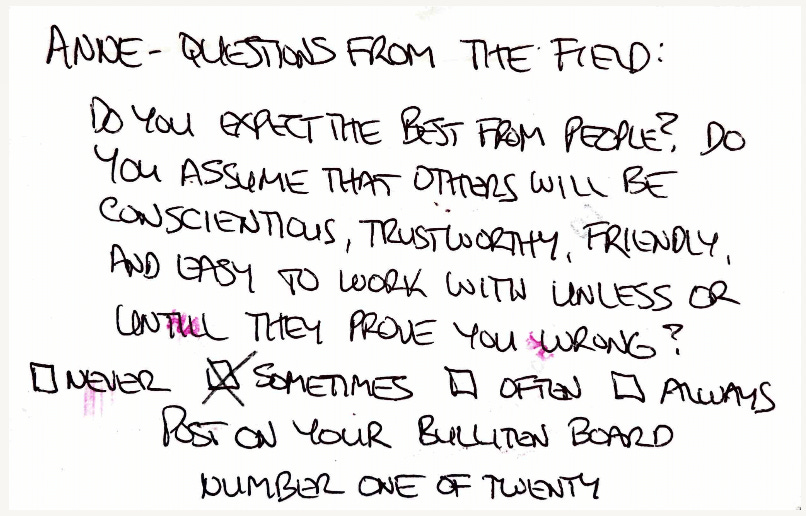 ANNE- QUESTIONS FROM THE FIELD:
DO YOU EXPECT THE BEST FROM PEOPLE? DO
YOU ASSUME THAT OTHERS WILL BE
CONSCIENTIOUS, TRUSTWORTHY, FRIENDLY,
AND EASY TO WORK WITH UNLESS OR
UNTILL THEY PROVE YOU WRONG?
☐ NEVER ☒ SOMETIMES ☐ OFTEN ☐ ALWAYS
POST ON YOUR BULLITEN BOARD
NUMBER ONE OF TWENTY